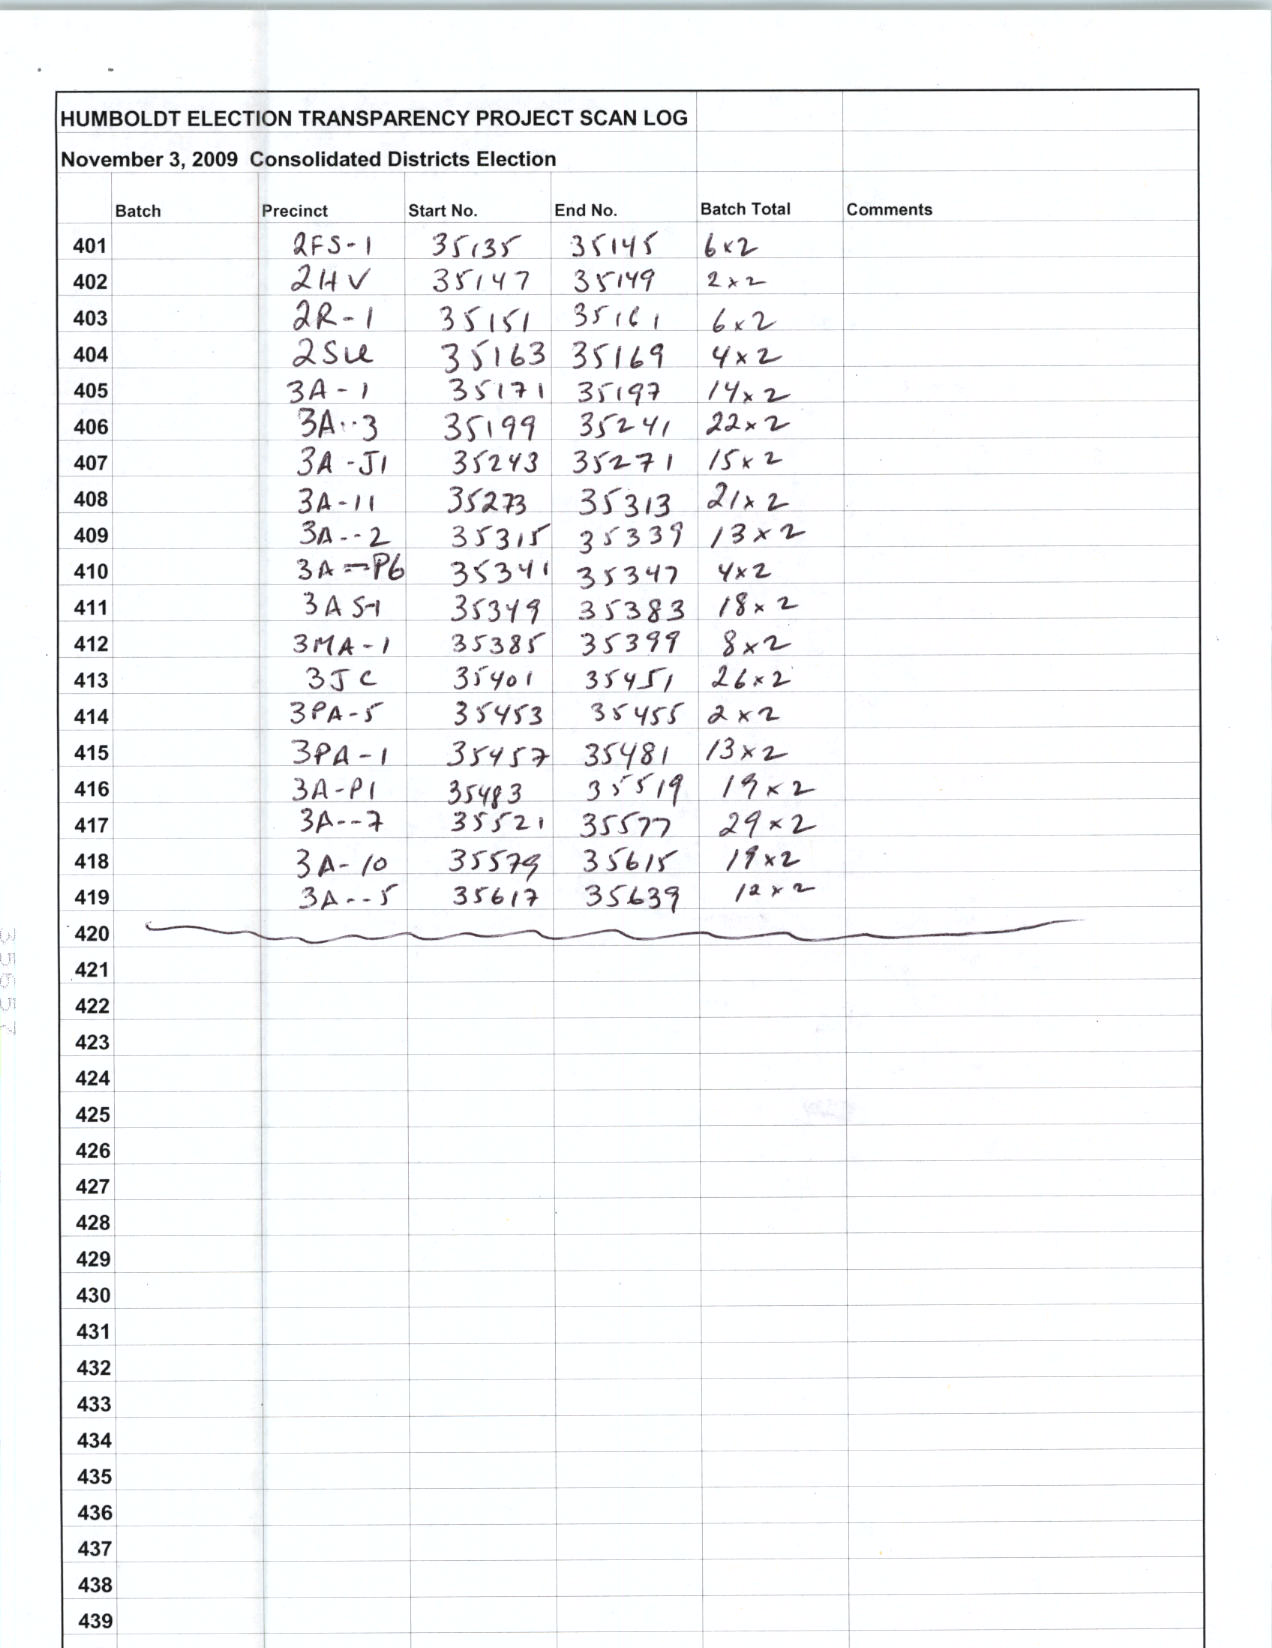 HUMBOLDT ELECTION TRANSPARENCY PROJECT SCAN LOG
November 3, 2009 Consolidated Districts Election
Batch Precinct Start No. End No. Batch Total Comments
401 2FS-1 35135 35145 6x2
402 2HV 35147 35149 2x2
403 2R-1 35151 35161 6x2
404 35163 35169 4x2
405 3A-1 35171 35197 14x2
406 3A--3 35199 35241 22x2
407 3A-J1 35243 35271 15x2
408 3A-11 35273 35313 21x2
409 3A--2 35315 35339 13x2
410 3A-P6 35341 35347 4x2
411 3AS-1 35349 35383 18x2
412 3MA-1 35385 35399 8x2
413 3JC 35401 35451 26x2
414 3PA-5 35453 35455 2x2
415 3PA-1 35457 35481 13x2
416 3A-P1 35483 35519 19x2
417 3A--7 35521 35577 29x2
418 3A-10 35579 35615 19x2
419 3A--5 35617 35639 12x2
420
421
422
423
424
425
426
427
428
429
430
431
432
433
434
435
436
437
438
439